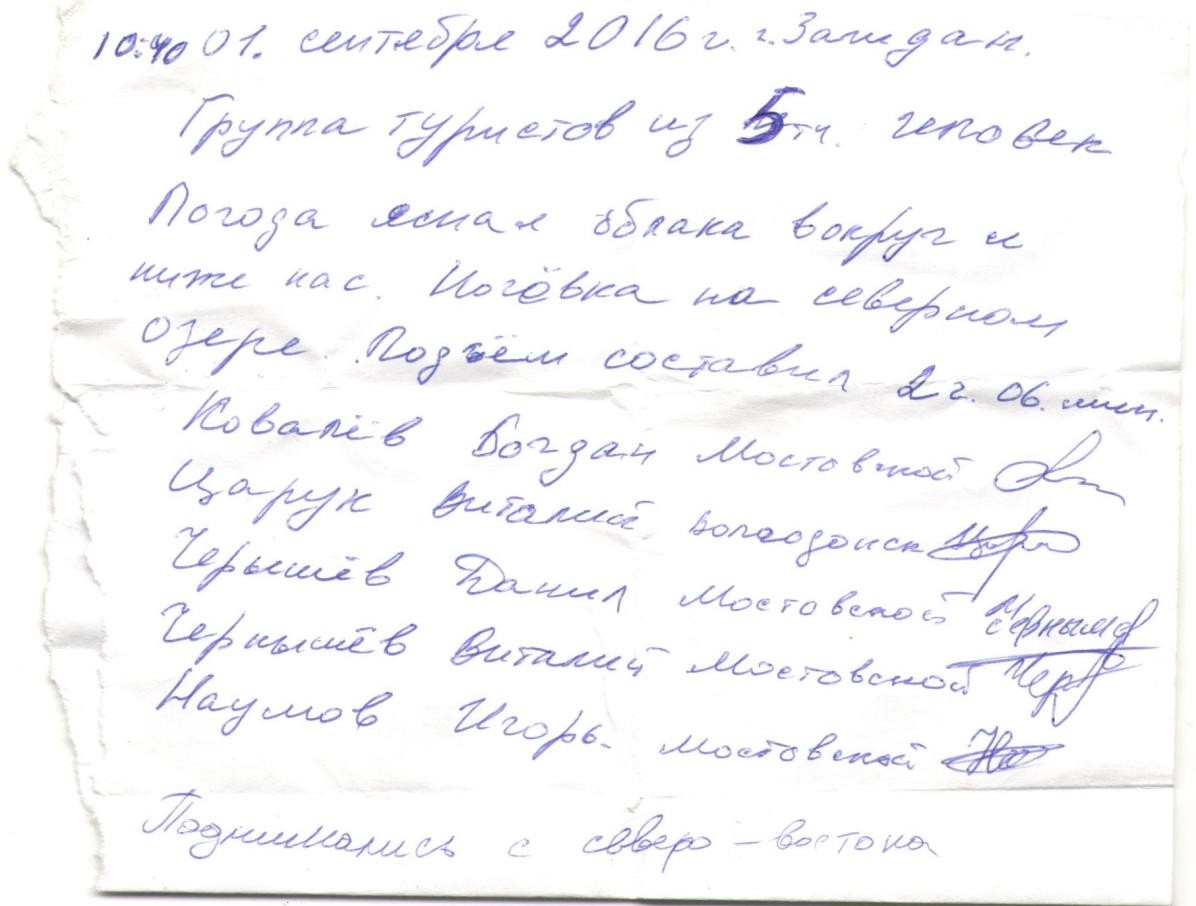 10:40 01. сентября 2016 г. г. Загедан.
Группа туристов из 5ти. человек
Погода ясная облака вокруг и
ниже нас. Ночёвка на северном
озере. Подъём составил 2 ч. 06. мин.
Ковалёв Богдан Мостовской
Царук Виталий Волгодонск
Черышёв Данил Мостовской
Чернышёв Виталий Мостовской
Наумов Игорь. Мостовской
Поднимались с северо-востока